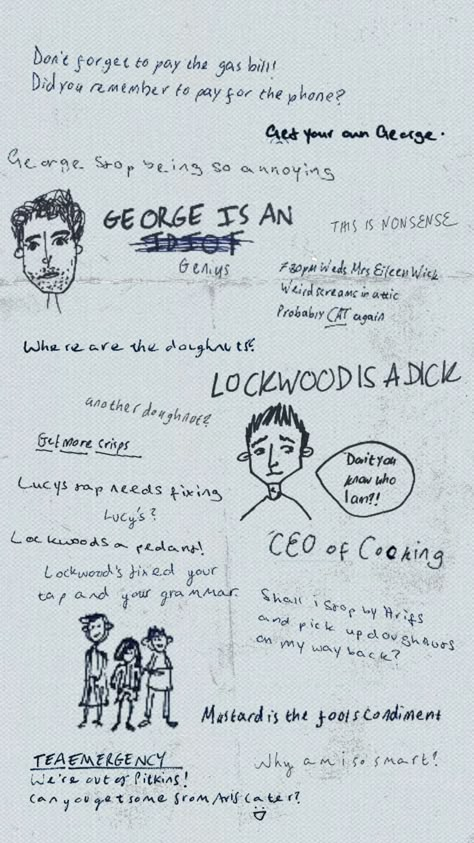 Don't forget to pay the gas bill!
Did you remember to pay for the phone?
Get your own George.
George stop being so annoying
GEORGE IS AN
IDIOT
Genius
THIS IS NONSENSE
7:30pm Weds Mrs Eileen Wick
Weird screams in attic
Probably CAT again
Where are the doughnuts?
LOCKWOOD IS A DICK
another doughnut?
Get more crisps
Don't you
know who
I am?!
Lucys tap needs fixing
Lucy's?
Lockwoods a pedant!
Lockwood's fixed your
tap and your grammar
CEO of Cooking
Shall i stop by Arifs
and pick up doughnuts
on my way back?
Mustard is the fools condiment
TEA EMERGENCY
We're out of Pitkins!
Can you get some from Arifs later?
Why am i so smart?